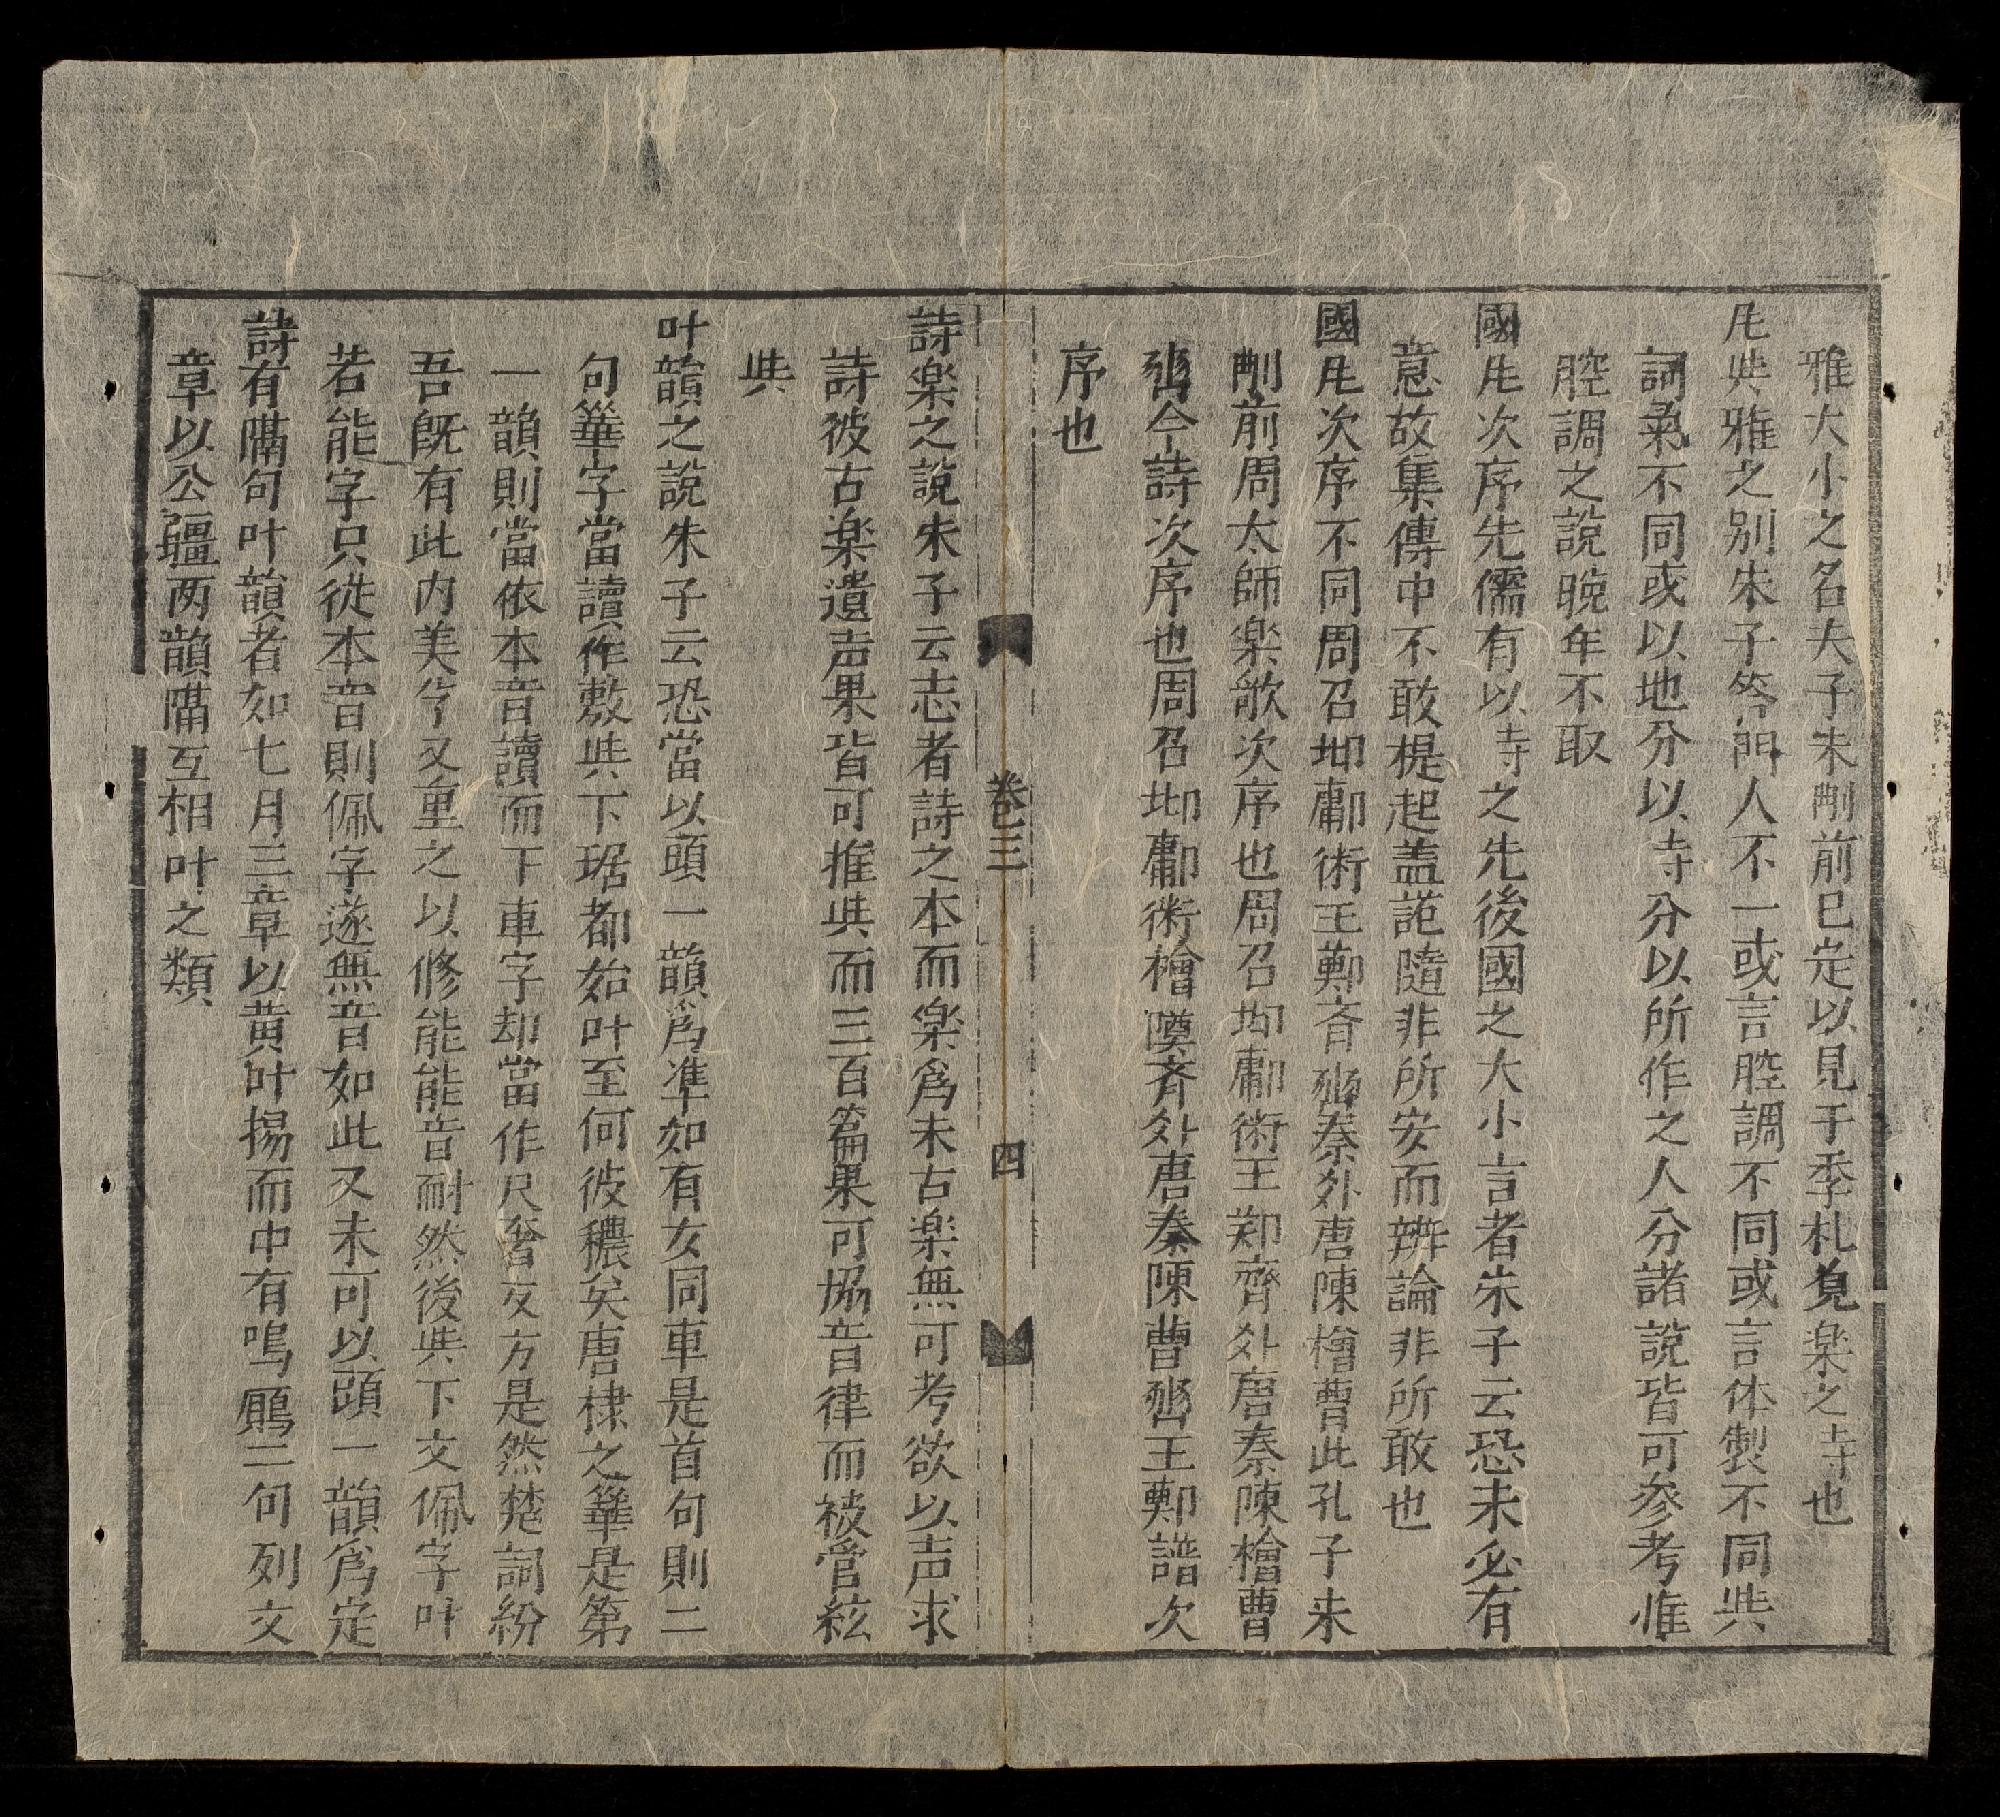 雅大小之名夫子未刪前已定以見于季札覌楽之寺也
凬與雅之别朱子答門人不一或言腔調不同或言体製不同與
詞氣不同或以地分以寺分以所作之人分諸說皆可参考惟
腔調之說晚年不取
國凬次序先儒有以寺之先後國之大小言者朱子云恐未必有
意故集傳中不敢提起盖詭隨非所安而辨論非所敢也
國凬次序不同周召邶鄘衛王鄭斉豳秦外唐陳檜曹此孔子未
刪前周太師楽歌次序也周召邶鄘衛王鄭齊外唐秦陳檜曹
豳今詩次序也周召邶鄘衛檜鄭斉外唐秦陳曹豳王鄭譜次
序也
卷三
四
詩楽之說朱子云志者詩之本而楽為末古楽無可考欲以声求
詩彼古楽遺声果皆可推與而三百篇果可協音律而被管絃
與
叶韻之說朱子云恐當以頭一韻為準如有女同車是首句則二
句華字當讀作敷與下琚都始叶至何彼穠矣唐棣之華是第
一韻則當依本音讀而下車字却當作尺奢反方是然楚詞紛
吾旣有此内美兮又重之以修能能音耐然後與下文佩字叶
若能字只從本音則佩字遂無音如此又未可以頭一韻為定
詩有隔句叶韻者如七月三章以黄叶揚而中有鳴鵙二句列文
章以公疆两韻隔互相叶之類